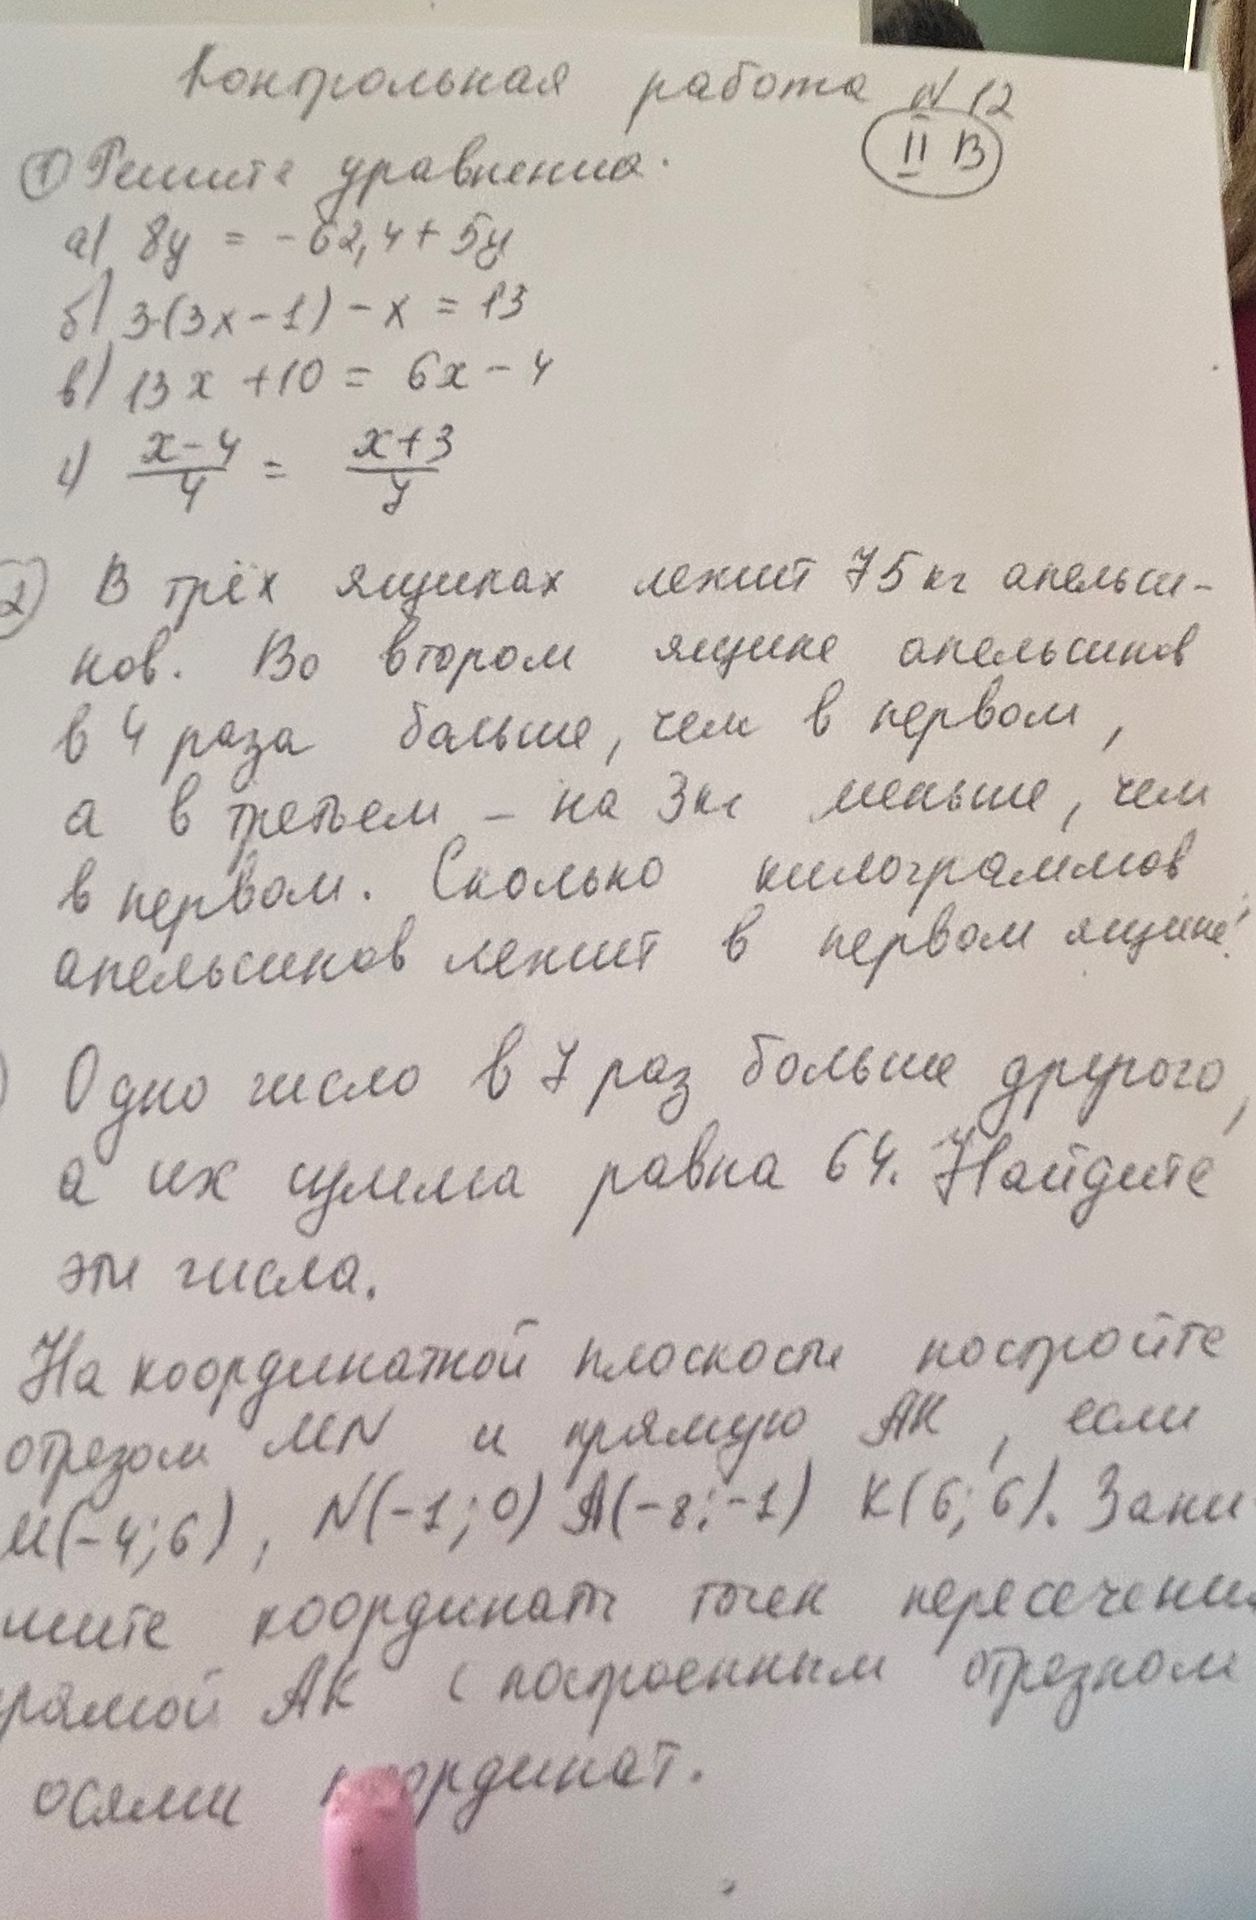 Контрольная работа № 12
II В
① Решите уравнения.
а) 8y = -62,4 + 5y
б) 3·(3x-1) - x = 13
в) 13x + 10 = 6x - 4
г) (x-4)/4 = (x+3)/7
2) В трёх ящиках лежит 75 кг апельси-
нов. Во втором ящике апельсинов
в 4 раза больше, чем в первом,
а в третьем - на 3 кг меньше, чем
в первом. Сколько килограммов
апельсинов лежит в первом ящике?
) Одно число в 7 раз больше другого,
а их сумма равна 64. Найдите
эти числа.
На координатной плоскости постройте
отрезок MN и прямую АК, если
M(-4;6), N(-1;0) A(-8;-1) K(6;6). Запи
шите координаты точек пересечени
рямой АК с построенным отрезком
осями координат.